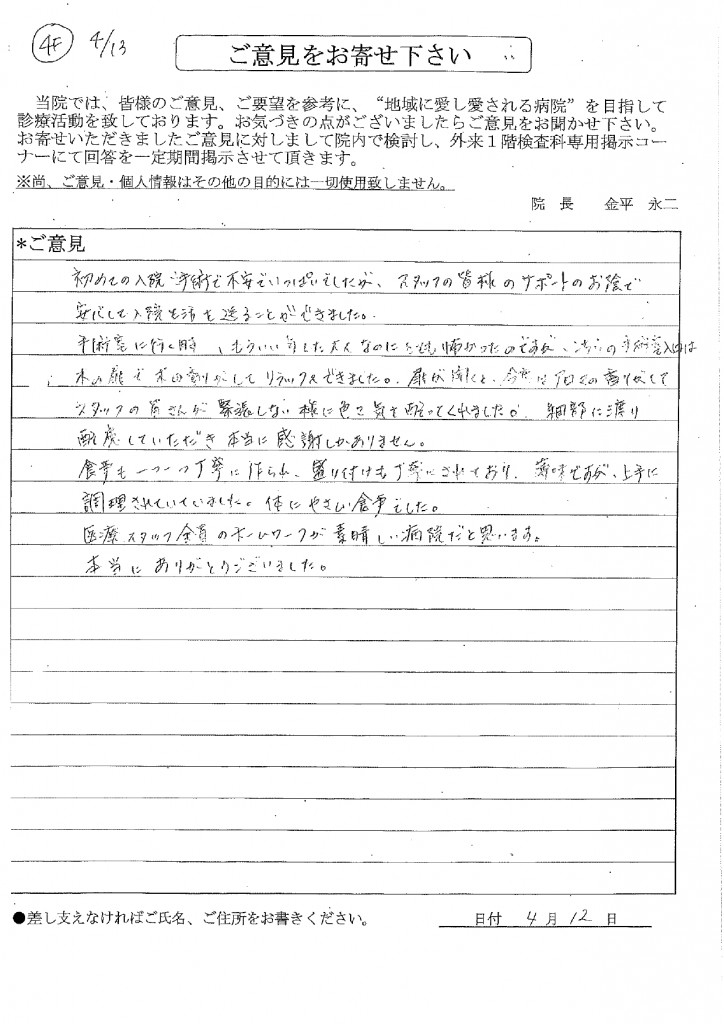 4F 4/13
ご意見をお寄せ下さい
当院では、皆様のご意見、ご要望を参考に、“地域に愛し愛される病院”を目指して
診療活動を致しております。お気づきの点がございましたらご意見をお聞かせ下さい。
お寄せいただきましたご意見に対しまして院内で検討し、外来1階検査科専用掲示コー
ナーにて回答を一定期間掲示させて頂きます。
※尚、ご意見・個人情報はその他の目的には一切使用致しません。
院長 金平 永二
*ご意見
初めての入院、手術で不安でいっぱいでしたが、スタッフの皆様のサポートのお陰で
安心して入院生活を送ることができました。
手術室に行く時、もういい年した大人なのにとても怖かったのですが、こちらの手術室入口は
木の扉で木の香りがしてリラックスできました。扉が開くと、アロマの香りがして
スタッフの皆さんが緊張しない様に色々気を配ってくれました。細部に渡り
配慮していただき本当に感謝しかありません。
食事も一つ一つ丁寧に作られ、盛り付けも丁寧にされており、薄味ですが、上手に
調理されていていました。体にやさしい食事でした。
医療スタッフ全員のホームワークが素晴しい病院だと思います。
本当にありがとうございました。
●差し支えなければご氏名、ご住所をお書きください。
日付 4月12日